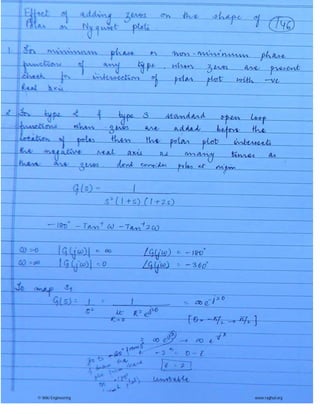 Effect of adding zeros on the shape of
Polar or Nyquist plots
146
1. For minimum phase or non-minimum phase
functions of any type, when zeros are present
check for intersection of polar plot with -ve
real axis
2. For type 2 & type 3 standard open loop
functions when zeros are added before the
location of poles then the polar plot intersects
the negative real axis as many times as
there are zeros dont consider poles at origin
G(s) = 1
s²(1+s)(1+2s)
-180° - Tan⁻¹ω - Tan⁻¹2ω
ω=0 |G(jω)| = ∞ ∠G(jω) = -180°
ω=∞ |G(jω)| = 0 ∠G(jω) = -360°
To map S₁
G(s) = 1 = 1 = ∞e^-j2θ
s² R² e^j2θ
R→0 [θ = -π/2 → π/2]
unstable
© Wiki Engineering
www.raghul.org